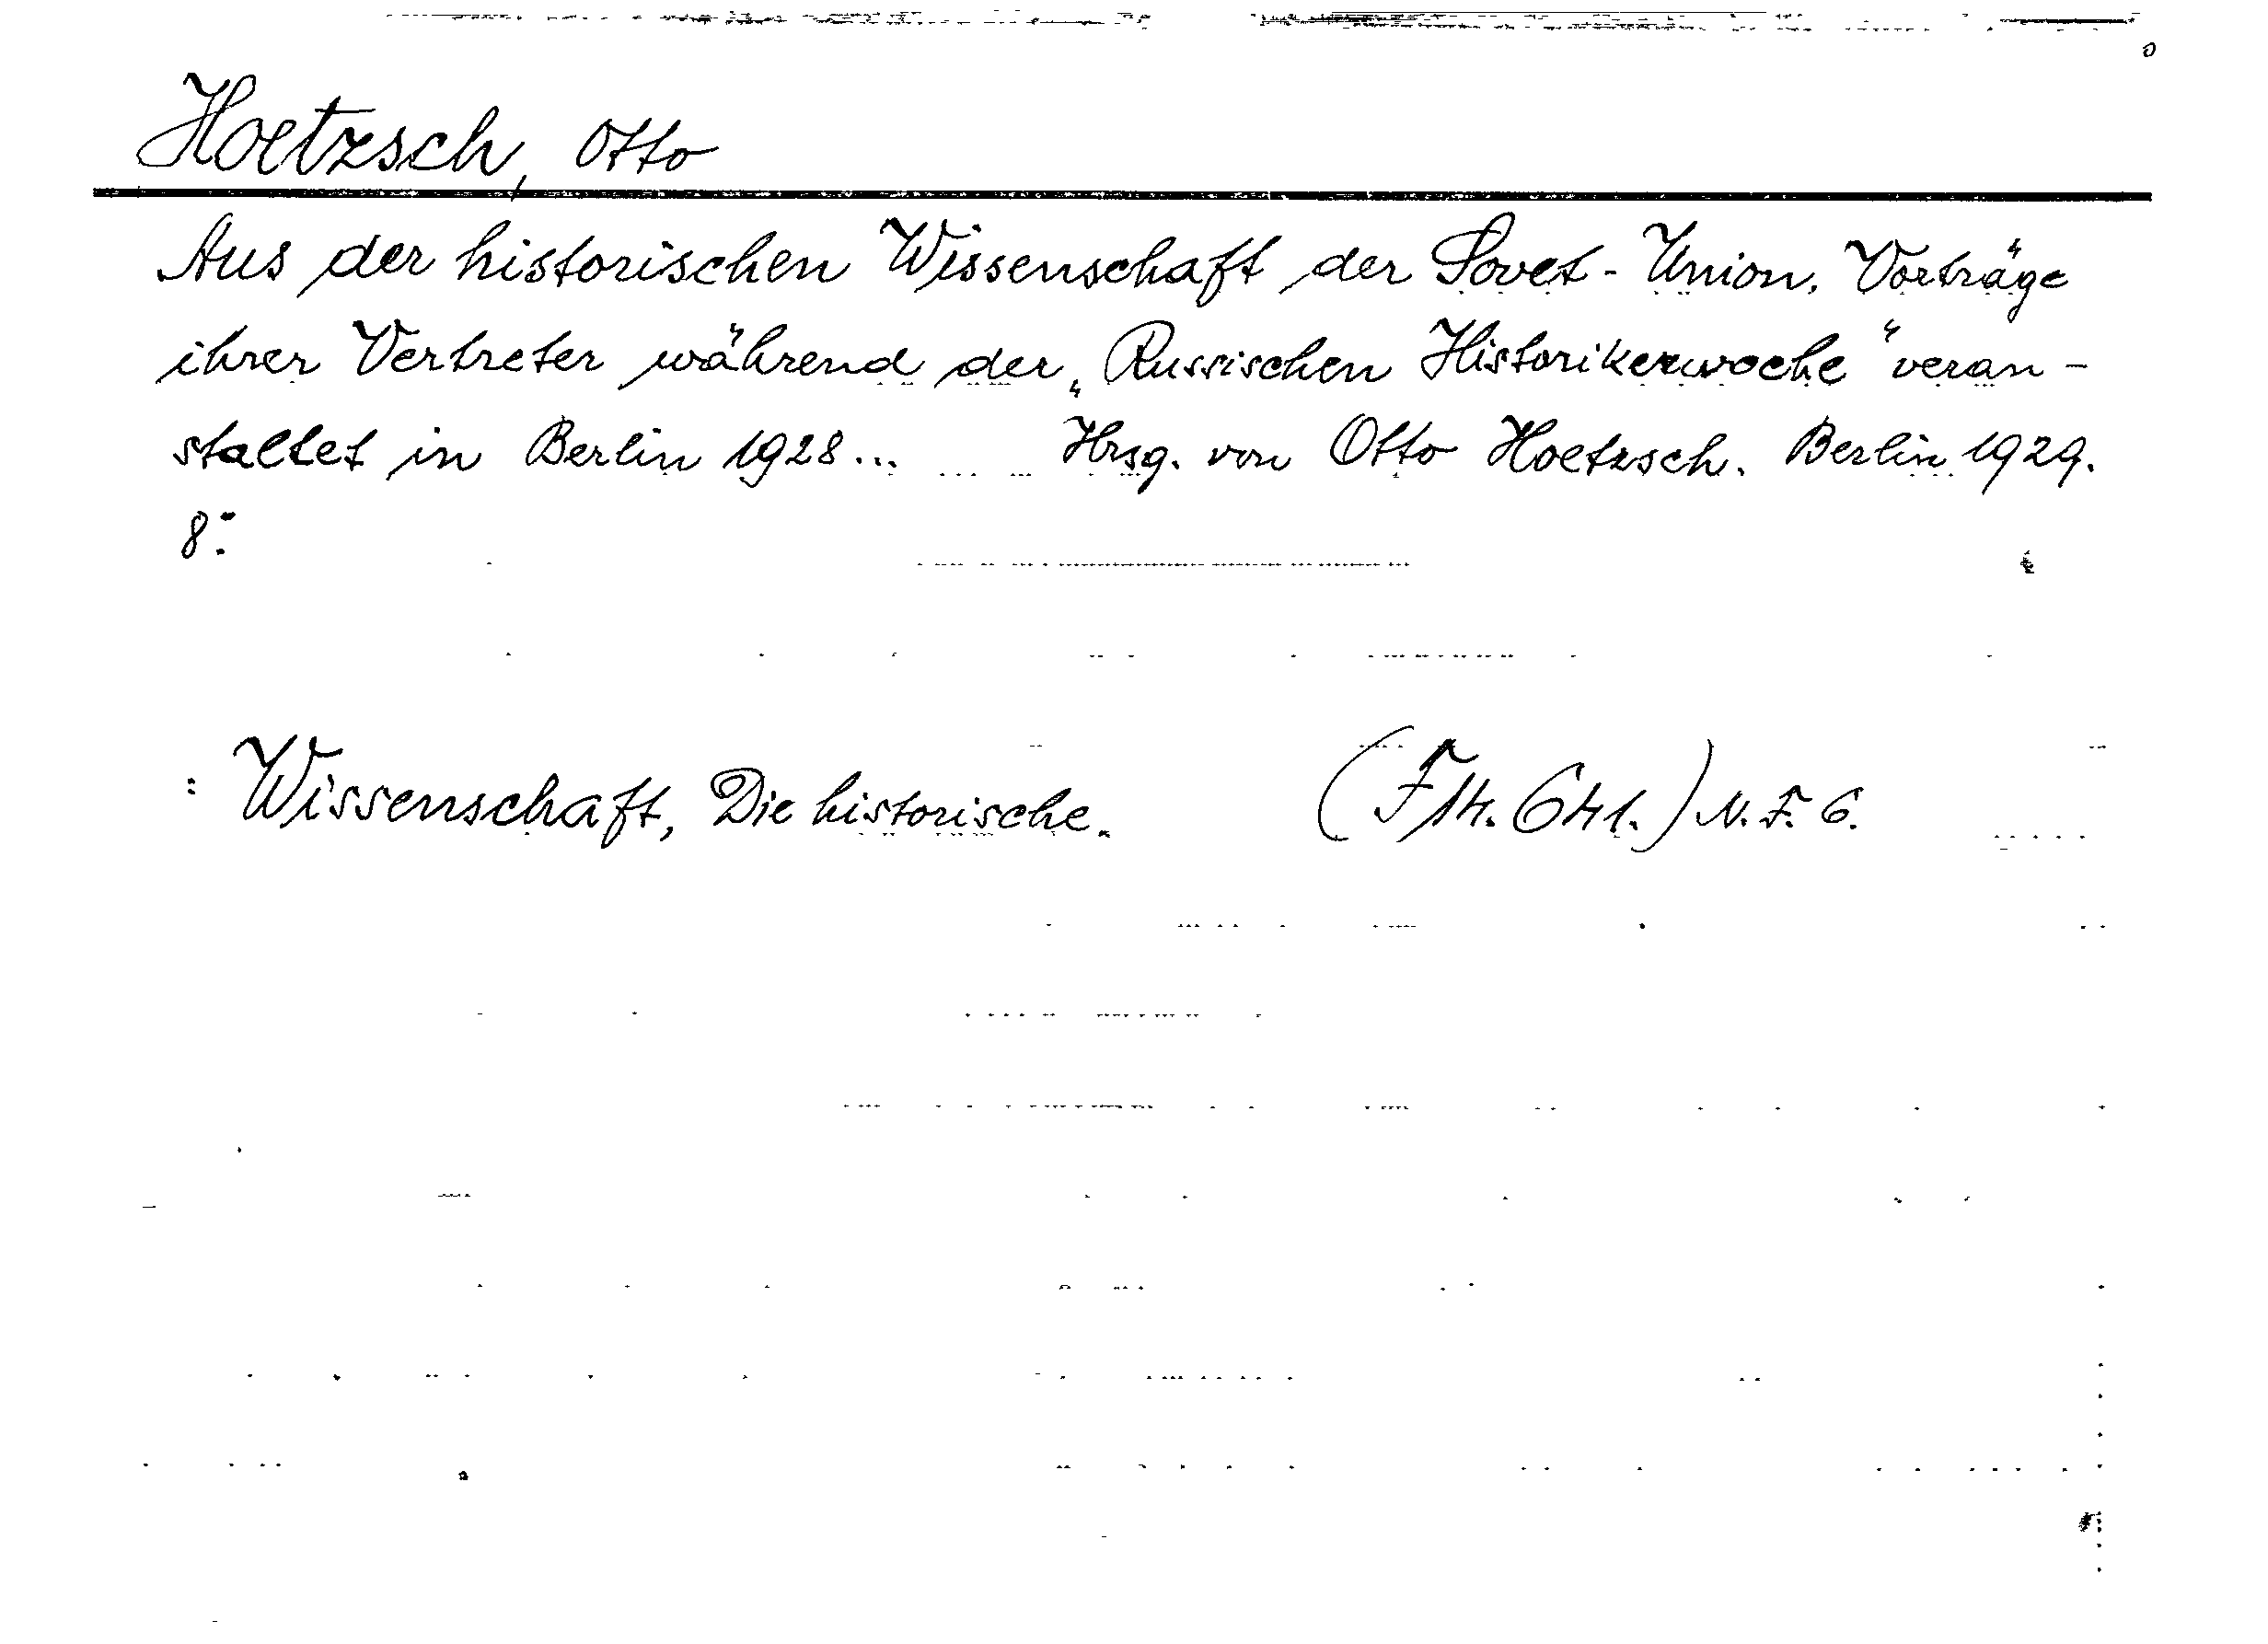 Hoetzsch, Otto
Aus der historischen Wissenschaft der Sovet-Union. Vorträge
ihrer Vertreter während der „Russischen Historikerwoche“ veran-
staltet in Berlin 1928... Hrsg. von Otto Hoetzsch. Berlin 1929.
8:
: Wissenschaft, Die historische. (F14. 641.) N. F. 6.